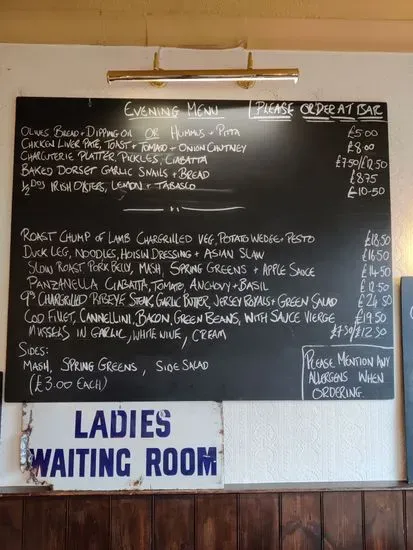 EVENING MENU
PLEASE ORDER AT BAR
OLIVES BREAD + DIPPING OIL OR HUMMUS + PITTA £5.00
CHICKEN LIVER PATE, TOAST + TOMATO + ONION CHUTNEY £8.00
CHARCUTERIE PLATTER, PICKLES, CIABATTA £7.50/£12.50
BAKED DORSET GARLIC SNAILS + BREAD £8.75
½ DOS IRISH OYSTERS, LEMON + TABASCO £10-50
ROAST CHUMP OF LAMB CHARGRILLED VEG, POTATO WEDGE + PESTO £18.50
DUCK LEG, NOODLES, HOISIN DRESSING + ASIAN SLAW £16.50
SLOW ROAST PORK BELLY, MASH, SPRING GREENS + APPLE SAUCE £14-50
PANZANELLA CIABATTA, TOMATO, ANCHOVY + BASIL £12.50
CHARGRILLED RIBEYE STEAK, GARLIC BUTTER, JERSEY ROYALS + GREEN SALAD £24.50
COD FILLET, CANNELLINI, BACON, GREEN BEANS, WITH SAUCE VIERGE £19.50
MUSSELS IN GARLIC, WHITE WINE, CREAM £7.50/£12.50
SIDES:
MASH, SPRING GREENS, SIDE SALAD
(£3.00 EACH)
PLEASE MENTION ANY
ALLERGENS WHEN
ORDERING.
LADIES
WAITING ROOM